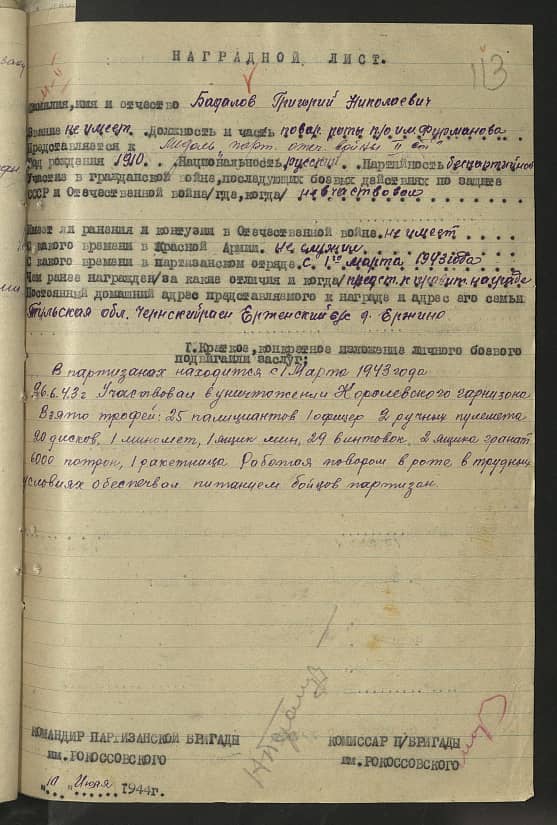 113
НАГРАДНОЙ ЛИСТ.
Фамилия, имя и отчество Бадалов Григорий Николаевич
Звание не имеет. Должность и часть повар роты п/о им. Фурманова
Представляется к Медаль „парт. отеч. войны II ст"
Год рождения 1910. Национальность русский. Партийность беспартийный
Участие в гражданской войне, последующих боевых действиях по защите
СССР и Отечественной войне/где, когда/ не участвовал
Имеет ли ранения и контузии в Отечественной войне. не имеет
С какого времени в Красной Армии. не служил
С какого времени в партизанском отряде. с 1го марта 1943 года
Чем ранее награжден/за какие отличия и когда/ предст. к правит. награде
Постоянный домашний адрес представляемого к награде и адрес его семьи
Тульская обл. Чернский район Ерженский с/с д. Ержино.
I. Краткое, конкретное изложение личного боевого
подвига или заслуг:
В партизанах находится с 1 Марта 1943 года
26.6.43 г Участвовал в уничтожении Королевского гарнизона
Взято трофей: 25 палициантов 1 офицер 2 ручных пулемета
20 дисков, 1 миномет, 1 ящик мин, 29 винтовок, 2 ящика гранат
6000 потрон, 1 ракетница Работая поваром в роте в трудных
условиях обеспечвал питанием бойцов партизан.
КОМАНДИР ПАРТИЗАНСКОЙ БРИГАДЫ
им. РОКОССОВСКОГО
КОМИССАР П/БРИГАДЫ
им. РОКОССОВСКОГО
"10" Июля 1944г.